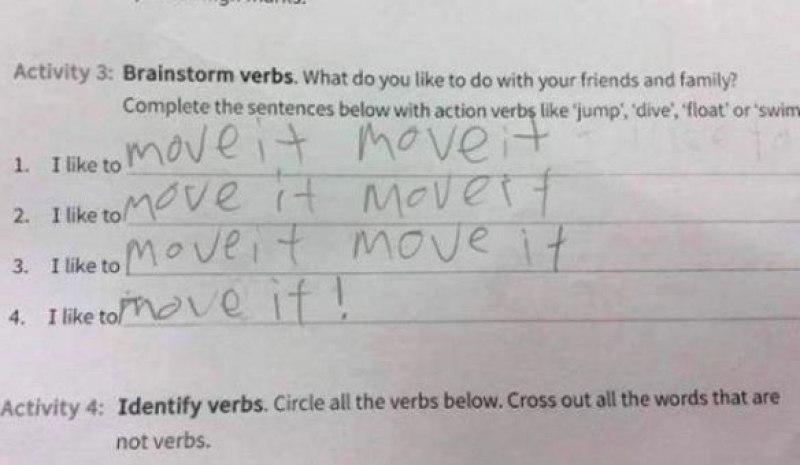 Activity 3: Brainstorm verbs. What do you like to do with your friends and family?
Complete the sentences below with action verbs like 'jump', 'dive', 'float' or 'swim
1. I like to move it move it
2. I like to move it move it
3. I like to move it move it
4. I like to move it!
Activity 4: Identify verbs. Circle all the verbs below. Cross out all the words that are
not verbs.